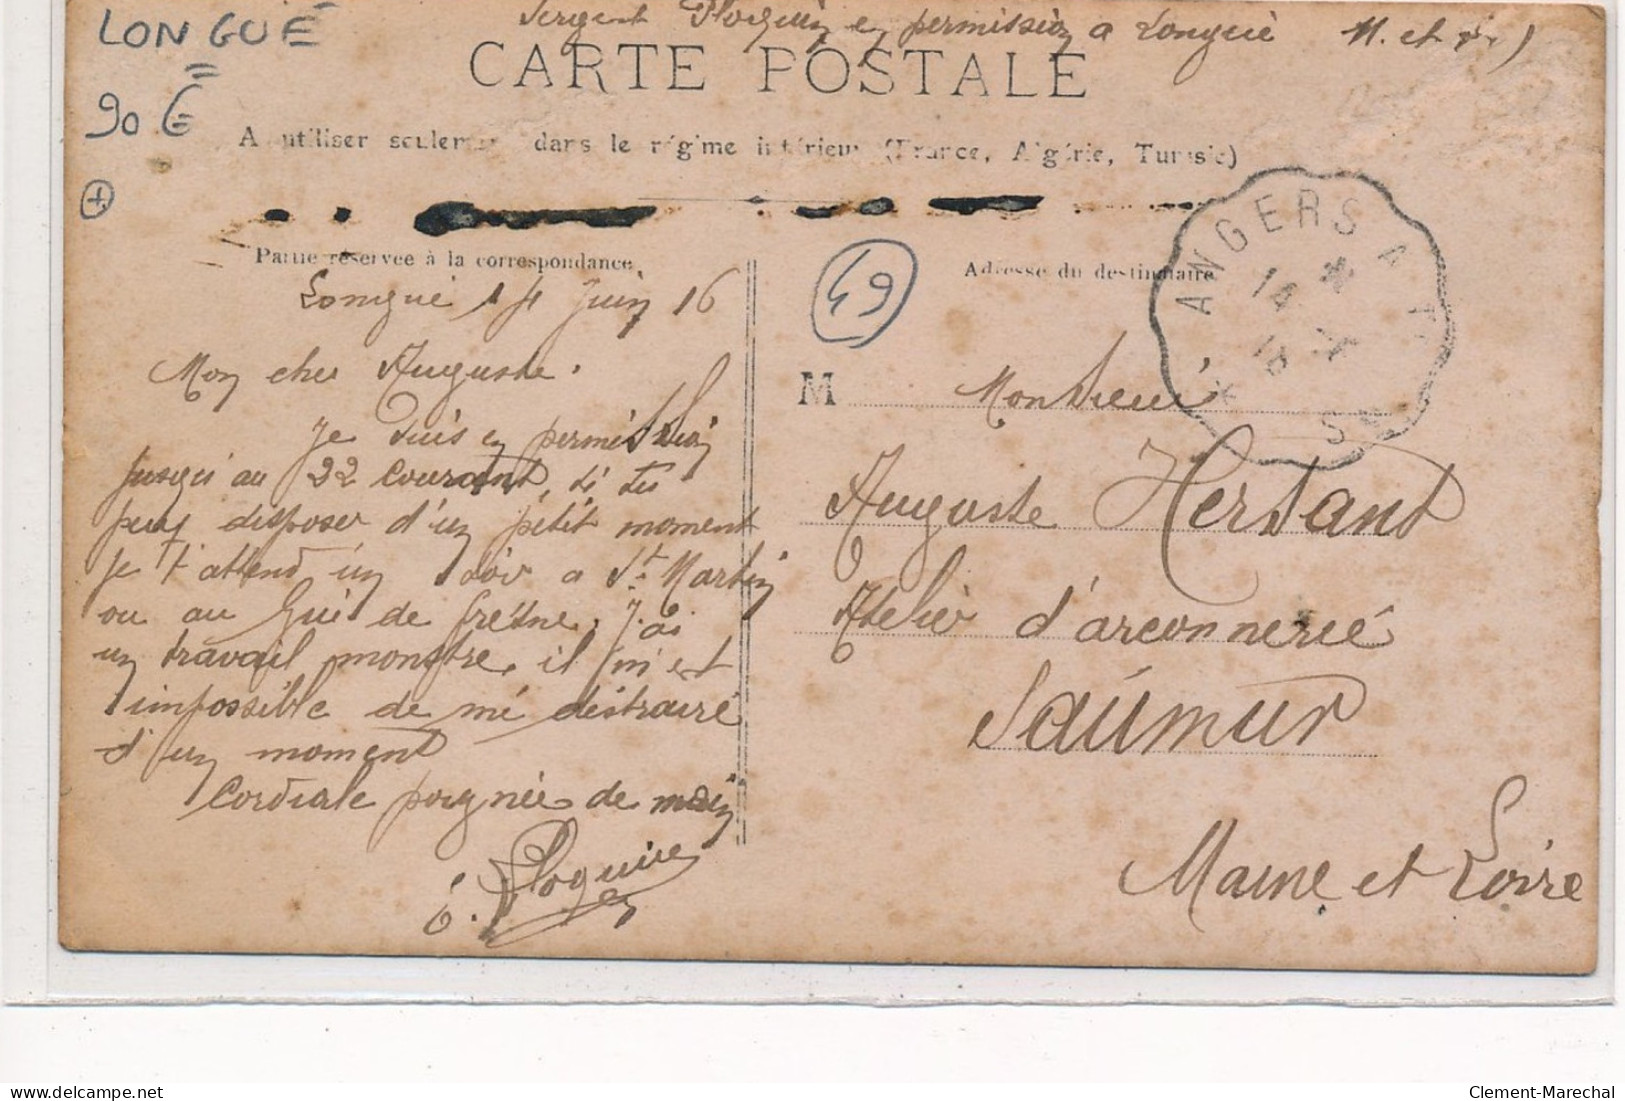 LONGUÉ
90 €
+
Sergent Ploquin en permission a Longué M. et
CARTE POSTALE
A utiliser seulement dans le régime intérieur (France, Algérie, Tunisie)
Partie réservée à la correspondance
Longué 14 Juin 16
Mon cher Auguste.
Je suis en permission
jusqu'au 22 courant, si tu
peux disposer d'un petit moment
je t'attend un soir a St. Martin
ou au Gué de Fresne. J'ai
un travail monstre, il m'est
impossible de me distraire
d'un moment
Cordiale poignée de main
E. Ploquin
49
Adresse du destinataire
ANGERS A
14
S
M Monsieur
Auguste Hersant
Atelier d'arçonnerie
Saumur
Maine et Loire
Clement-Marechal